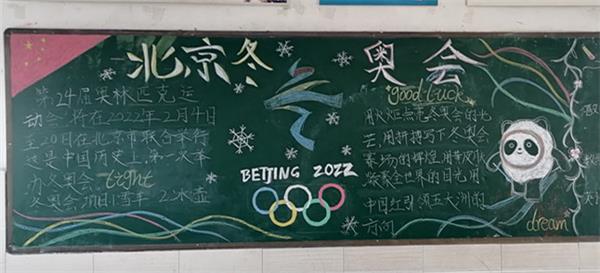 北京冬奥会
第24届奥林匹克运
动会,将在2022年2月4日
至20日在北京市联合举行
这是中国历史上第一次举
办冬奥会 light
冬奥会项目1雪车 2冰壶
BEIJING 2022
good luck
用火炬点亮冬奥会的光
芒,用拼搏写下冬奥会
赛场的辉煌,用
凝聚全世界的目光,用
中国红引领五大洲的
方向
dream